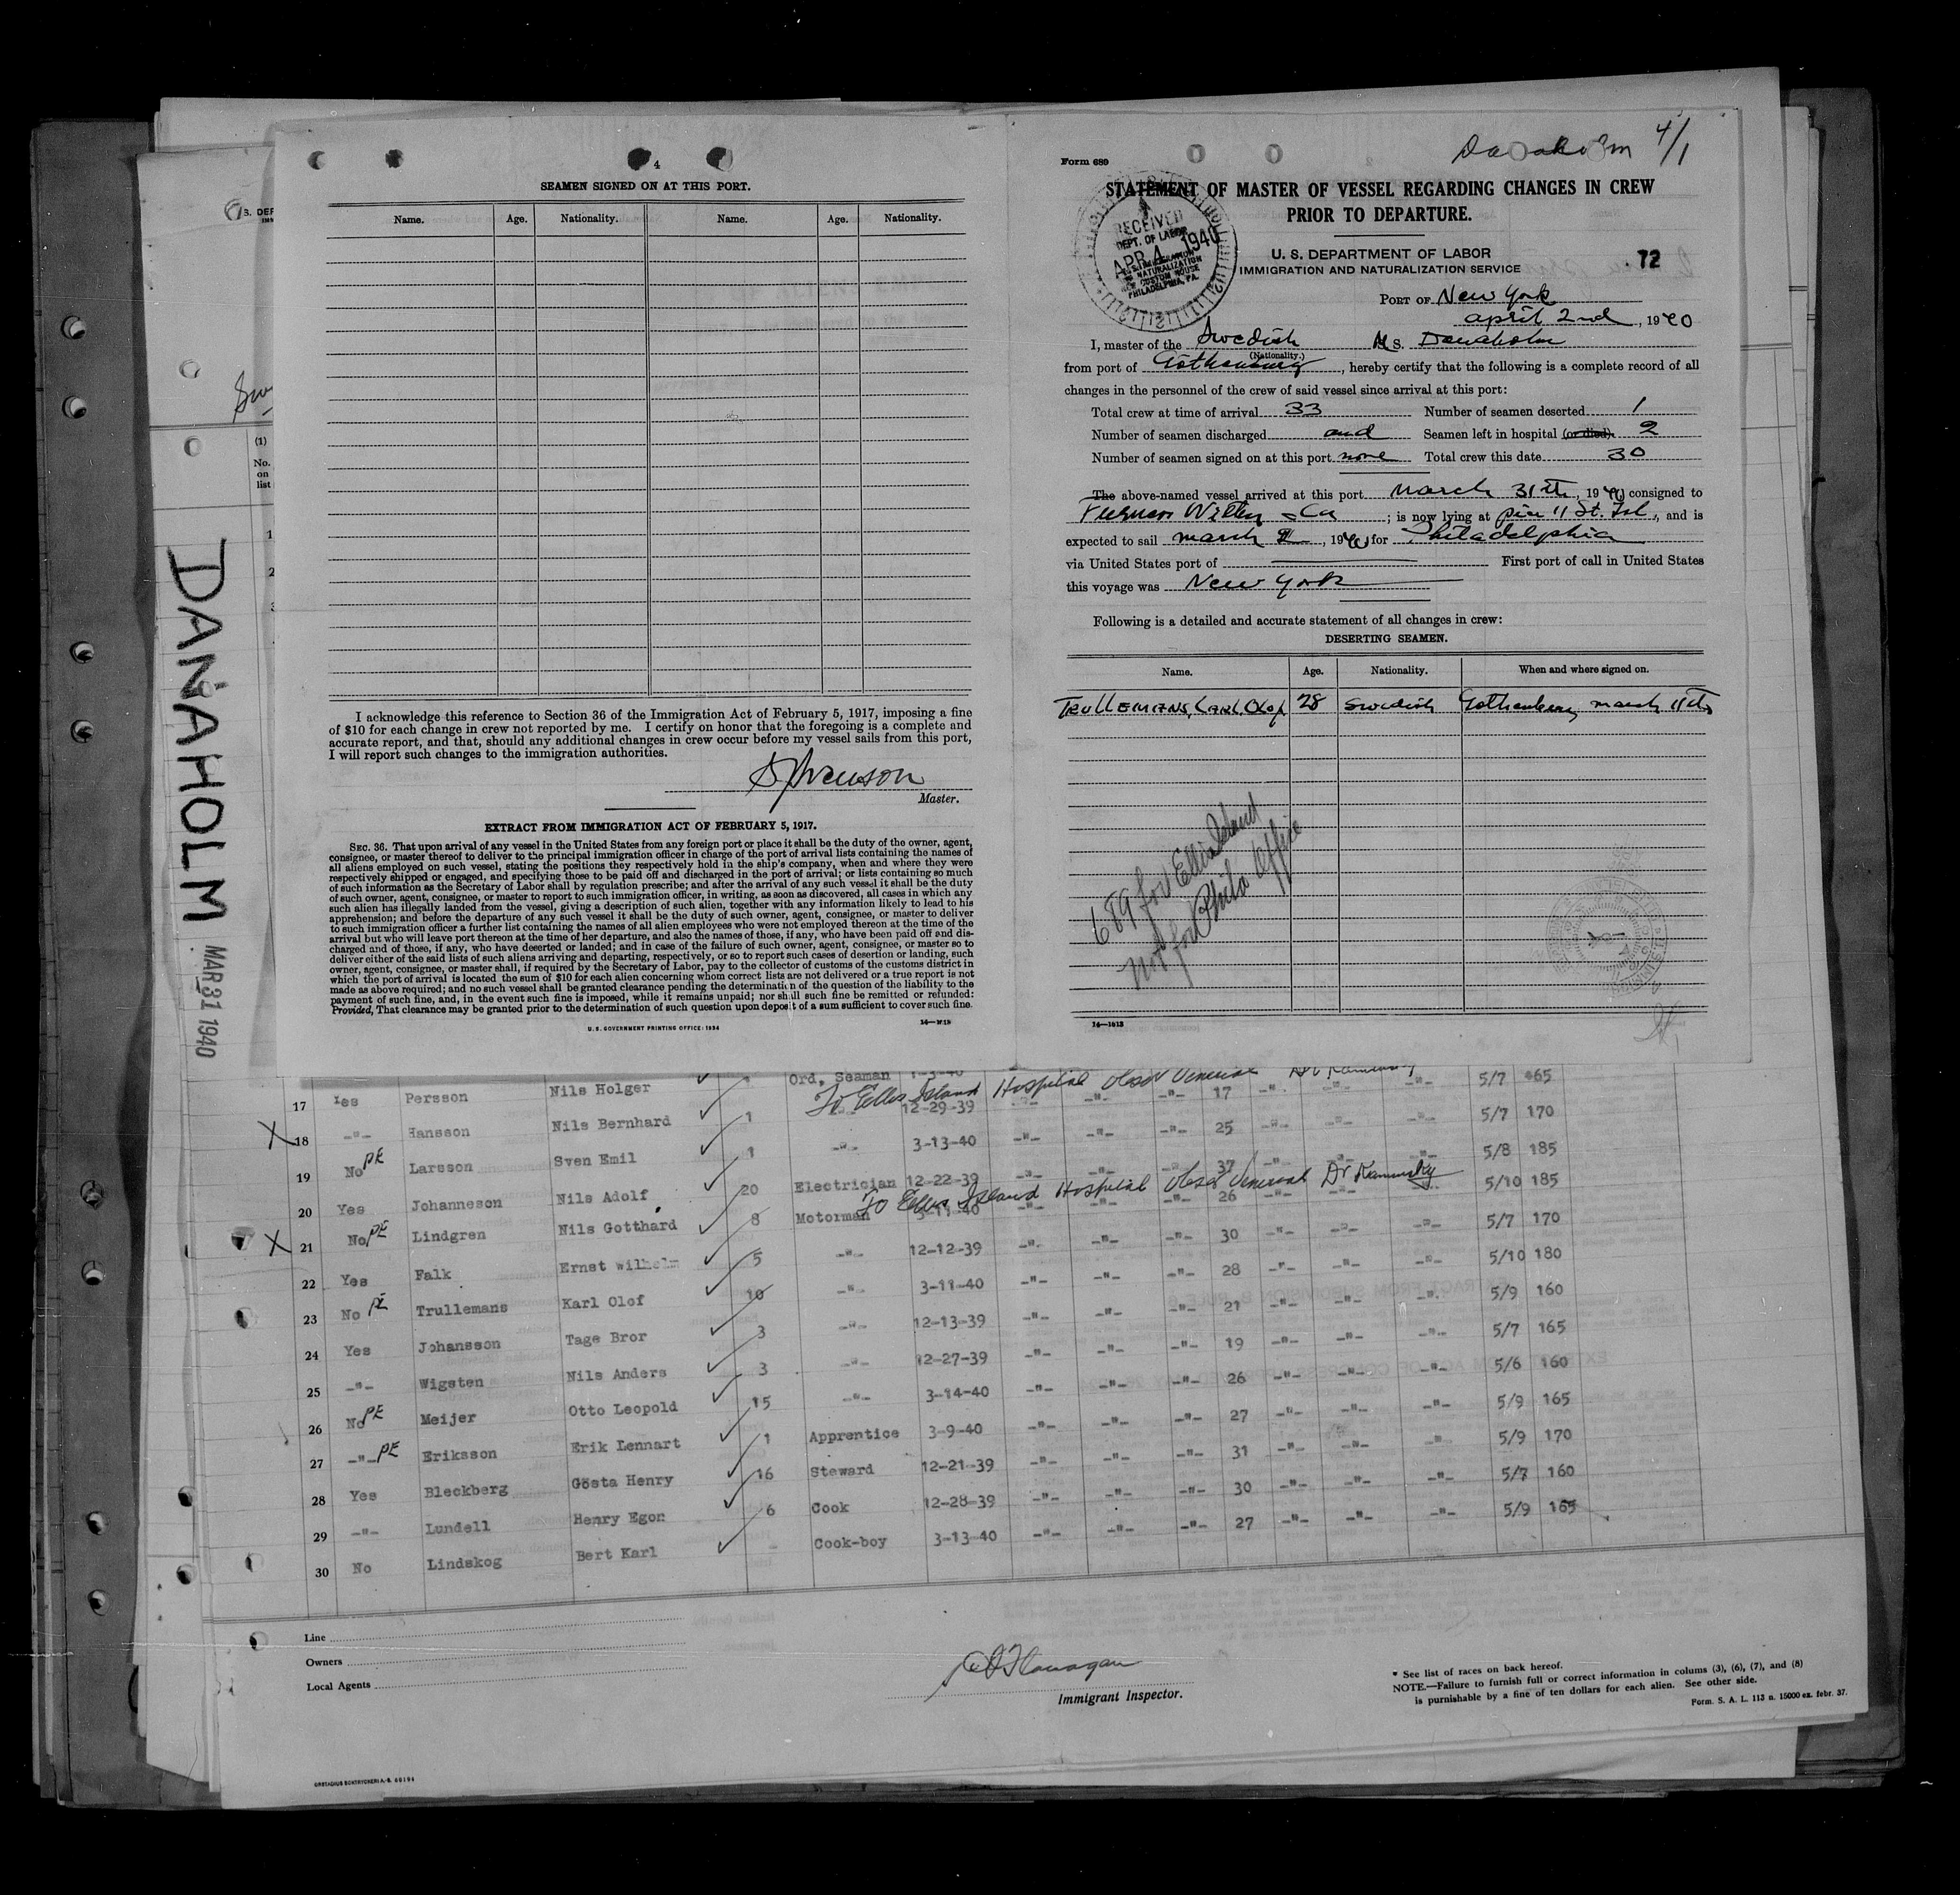 4
SEAMEN SIGNED ON AT THIS PORT.
Name. Age. Nationality. Name. Age. Nationality.
I acknowledge this reference to Section 36 of the Immigration Act of February 5, 1917, imposing a fine
of $10 for each change in crew not reported by me. I certify on honor that the foregoing is a complete and
accurate report, and that, should any additional changes in crew occur before my vessel sails from this port,
I will report such changes to the immigration authorities.
Master.
EXTRACT FROM IMMIGRATION ACT OF FEBRUARY 5, 1917.
SEC. 36. That upon arrival of any vessel in the United States from any foreign port or place it shall be the duty of the owner, agent,
consignee, or master thereof to deliver to the principal immigration officer in charge of the port of arrival lists containing the names of
all aliens employed on such vessel, stating the positions they respectively hold in the ship's company, when and where they were
respectively shipped or engaged, and specifying those to be paid off and discharged in the port of arrival; or lists containing so much
of such information as the Secretary of Labor shall by regulation prescribe; and after the arrival of any such vessel it shall be the duty
of such owner, agent, consignee, or master to report to such immigration officer, in writing, as soon as discovered, all cases in which any
such alien has illegally landed from the vessel, giving a description of such alien, together with any information likely to lead to his
apprehension; and before the departure of any such vessel it shall be the duty of such owner, agent, consignee, or master to deliver
to such immigration officer a further list containing the names of all alien employees who were not employed thereon at the time of the
arrival but who will leave port thereon at the time of her departure, and also the names of those, if any, who have been paid off and dis-
charged and of those, if any, who have deserted or landed; and in case of the failure of such owner, agent, consignee, or master so to
deliver either of the said lists of such aliens arriving and departing, respectively, or so to report such cases of desertion or landing, such
owner, agent, consignee, or master shall, if required by the Secretary of Labor, pay to the collector of customs of the customs district in
which the port of arrival is located the sum of $10 for each alien concerning whom correct lists are not delivered or a true report is not
made as above required; and no such vessel shall be granted clearance pending the determination of the question of the liability to the
payment of such fine, and, in the event such fine is imposed, while it remains unpaid; nor shall such fine be remitted or refunded:
Provided, That clearance may be granted prior to the determination of such question upon deposit of a sum sufficient to cover such fine.
U. S. GOVERNMENT PRINTING OFFICE: 1934
Danaholm 4/1
Form 689
STATEMENT OF MASTER OF VESSEL REGARDING CHANGES IN CREW
PRIOR TO DEPARTURE.
RECEIVED
DEPT. OF LABOR
APR 4 1940
IMMIGRATION
NATURALIZATION
NEW CUSTOM HOUSE
PHILADELPHIA, PA.
U. S. DEPARTMENT OF LABOR
IMMIGRATION AND NATURALIZATION SERVICE
72
PORT OF New York
april 2nd, 1940
I, master of the Swedish M S. Danaholm
(Nationality.)
from port of Gothenburg, hereby certify that the following is a complete record of all
changes in the personnel of the crew of said vessel since arrival at this port:
Total crew at time of arrival 33 Number of seamen deserted 1
Number of seamen discharged and Seamen left in hospital (or died) 2
Number of seamen signed on at this port none Total crew this date 30
The above-named vessel arrived at this port March 31th, 1940 consigned to
; is now lying at pier 11 St. , and is
expected to sail march 2, 1940 for Philadelphia
via United States port of First port of call in United States
this voyage was New York
Following is a detailed and accurate statement of all changes in crew:
DESERTING SEAMEN.
Name. Age. Nationality. When and where signed on.
TRULLEMANS, CARL, OLOF 28 Swedish Gothenburg march 11th
689 for Ellis Island
not for Phila Office
14—1613
(1)
No.
on
list
1
2
3
DANAHOLM MAR 31 1940
17 Yes Persson Nils Holger Ord, Seaman 1-3-40 5/7 165
To Ellis Island Hospital Obser Venereal Dr Kaminsky
18 -"- Hansson Nils Bernhard 1 12-29-39 17 5/7 170
19 No PE Larsson Sven Emil 1 -"- 3-13-40 25 5/8 185
20 Yes Johanneson Nils Adolf 20 Electrician 12-22-39 37 5/10 185
To Ellis Island Hospital Obser Venereal Dr Kaminsky
21 No PE Lindgren Nils Gotthard 8 Motorman 3-11-40 26 5/7 170
22 Yes Falk Ernst Wilhelm 5 -"- 12-12-39 30 5/10 180
23 No PE Trullemans Karl Olof 10 -"- 3-11-40 28 5/9 160
24 Yes Johansson Tage Bror 3 -"- 12-13-39 21 5/7 165
25 -"- Wigsten Nils Anders 3 -"- 12-27-39 19 5/6 160
26 No PE Meijer Otto Leopold 15 -"- 3-14-40 26 5/9 165
27 -"- PE Eriksson Erik Lennart 1 Apprentice 3-9-40 27 5/9 170
28 Yes Bleckberg Gösta Henry 16 Steward 12-21-39 31 5/7 160
29 -"- Lundell Henry Egon 6 Cook 12-28-39 30 5/9 165
30 No Lindskog Bert Karl - Cook-boy 3-13-40 27
Line
Owners
Local Agents
Immigrant Inspector.
* See list of races on back hereof.
NOTE.—Failure to furnish full or correct information in colums (3), (6), (7), and (8)
is purnishable by a fine of ten dollars for each alien. See other side.
Form. S. A. L. 113 n. 15000 ex. febr. 37.